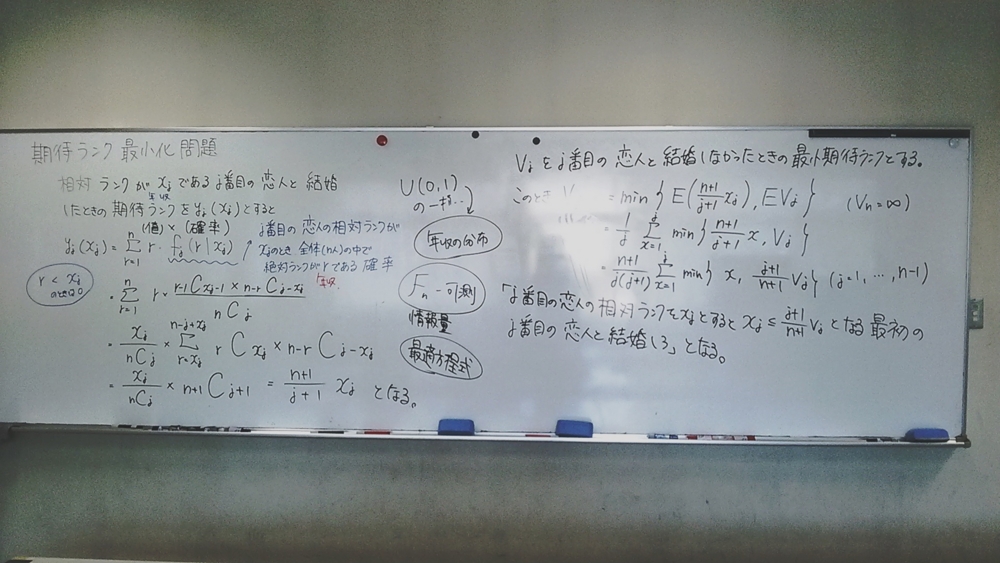 期待ランク最小化問題
相対ランクが xⱼ である j番目の恋人と結婚
年収
したときの期待ランクを yⱼ(xⱼ) とすると
(値) × (確率)
yⱼ(xⱼ) = Σ_{r=1}^{n} r · fⱼ(r|xⱼ)
j番目の恋人の相対ランクが
xⱼのとき 全体(n人)の中で
絶対ランクがrである 確率
年収
r < xⱼ
= Σ_{r=1}^{n} r × (r-1 C xⱼ-1 × n-r C j-xⱼ) / nCⱼ
= xⱼ / nCⱼ × Σ_{r=xⱼ}^{n-j+xⱼ} r C xⱼ × n-r C j-xⱼ
= xⱼ / nCⱼ × n+1 C j+1 = (n+1)/(j+1) xⱼ となる。
U(0,1)
の一様…
年収の分布
Fₙ-可測
情報量
最適方程式
Vⱼ を j番目の恋人と結婚しなかったときの最小期待ランクとする。
このとき V = min{ E((n+1)/(j+1) xⱼ), EVⱼ } (Vₙ=∞)
= 1/j Σ_{x=1}^{j} min{ (n+1)/(j+1) x, Vⱼ }
= (n+1)/(j(j+1)) Σ_{x=1}^{j} min{ x, (j+1)/(n+1) Vⱼ } (j=1, …, n-1)
「j番目の恋人の相対ランクを xⱼ とすると xⱼ ≤ (j+1)/(n+1) Vⱼ となる 最初の
j番目の恋人と結婚しろ」となる。